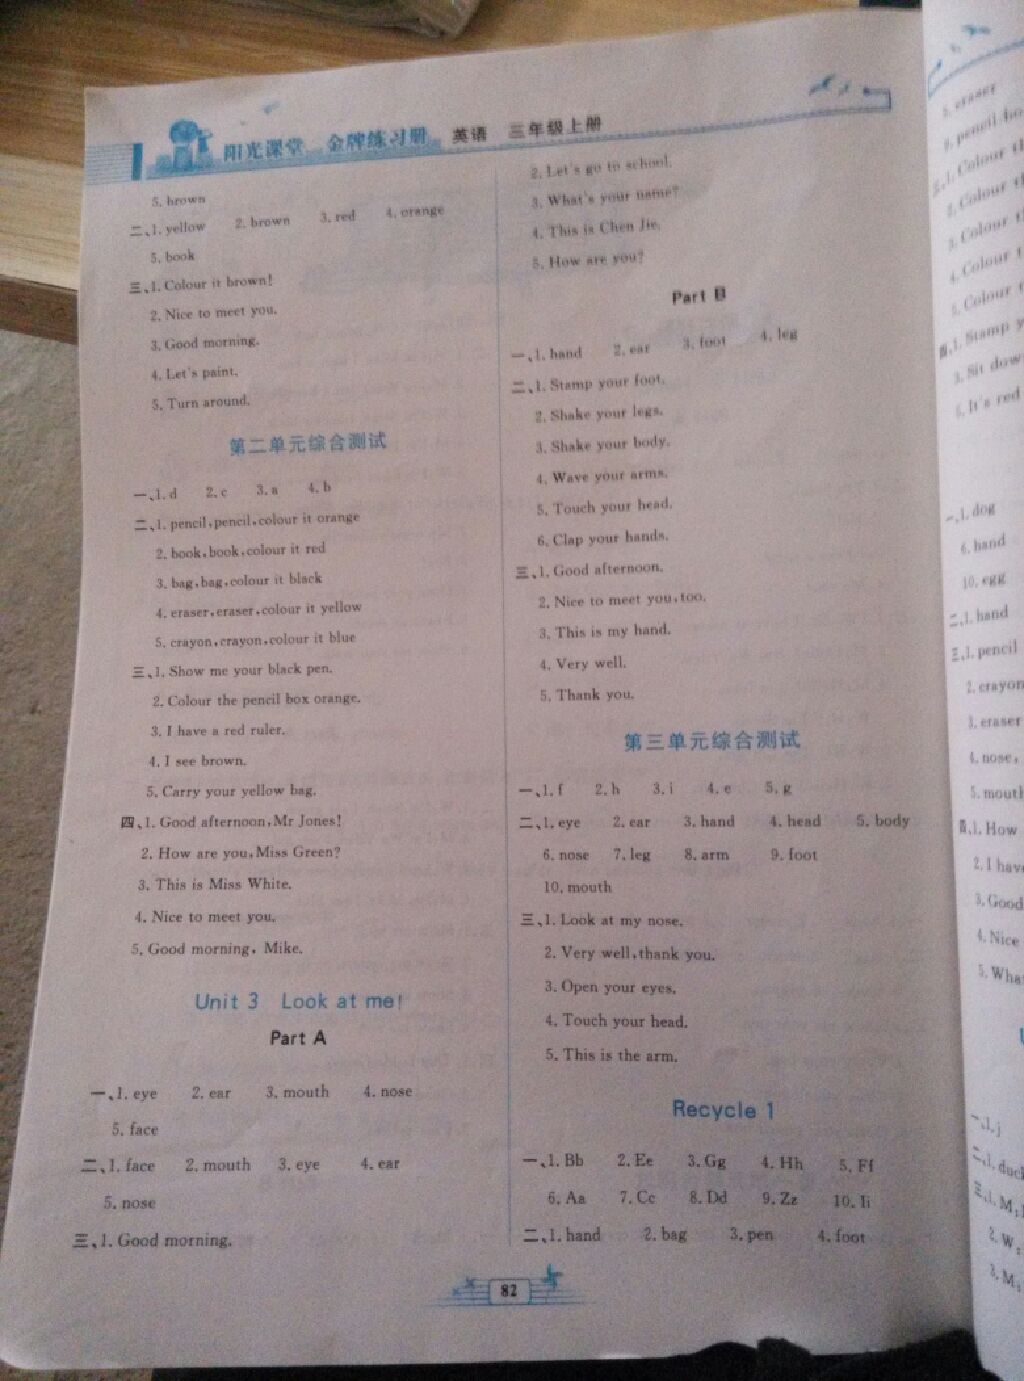 阳光课堂 金牌练习册 英语 三年级上册
5. brown
二、1. yellow 2. brown 3. red 4. orange
5. book
三、1. Colour it brown!
2. Nice to meet you.
3. Good morning.
4. Let's paint.
5. Turn around.
第二单元综合测试
一、1. d 2. c 3. a 4. b
二、1. pencil,pencil,colour it orange
2. book,book,colour it red
3. bag,bag,colour it black
4. eraser,eraser,colour it yellow
5. crayon,crayon,colour it blue
三、1. Show me your black pen.
2. Colour the pencil box orange.
3. I have a red ruler.
4. I see brown.
5. Carry your yellow bag.
四、1. Good afternoon,Mr Jones!
2. How are you,Miss Green?
3. This is Miss White.
4. Nice to meet you.
5. Good morning, Mike.
Unit 3 Look at me!
Part A
一、1. eye 2. ear 3. mouth 4. nose
5. face
二、1. face 2. mouth 3. eye 4. ear
5. nose
三、1. Good morning.
2. Let's go to school.
3. What's your name?
4. This is Chen Jie.
5. How are you?
Part B
一、1. hand 2. ear 3. foot 4. leg
二、1. Stamp your foot.
2. Shake your legs.
3. Shake your body.
4. Wave your arms.
5. Touch your head.
6. Clap your hands.
三、1. Good afternoon.
2. Nice to meet you,too.
3. This is my hand.
4. Very well.
5. Thank you.
第三单元综合测试
一、1. f 2. h 3. i 4. e 5. g
二、1. eye 2. ear 3. hand 4. head 5. body
6. nose 7. leg 8. arm 9. foot
10. mouth
三、1. Look at my nose.
2. Very well,thank you.
3. Open your eyes.
4. Touch your head.
5. This is the arm.
Recycle 1
一、1. Bb 2. Ee 3. Gg 4. Hh 5. Ff
6. Aa 7. Cc 8. Dd 9. Zz 10. Ii
二、1. hand 2. bag 3. pen 4. foot
82
5. eraser
三、1. Colour
2. Colour
3. Colour
4. Colour
5. Colour
四、1. Stamp
3. Sit
5. It's red
一、1. dog
6. hand
10. egg
二、1. hand
三、1. pencil
2. crayon
3. eraser
4. nose,
5. mouth
四、1. How
2. I have
3. Good
4. Nice
5. What
一、1. j
二、1. duck
三、1. M:
2. W:
3. M: